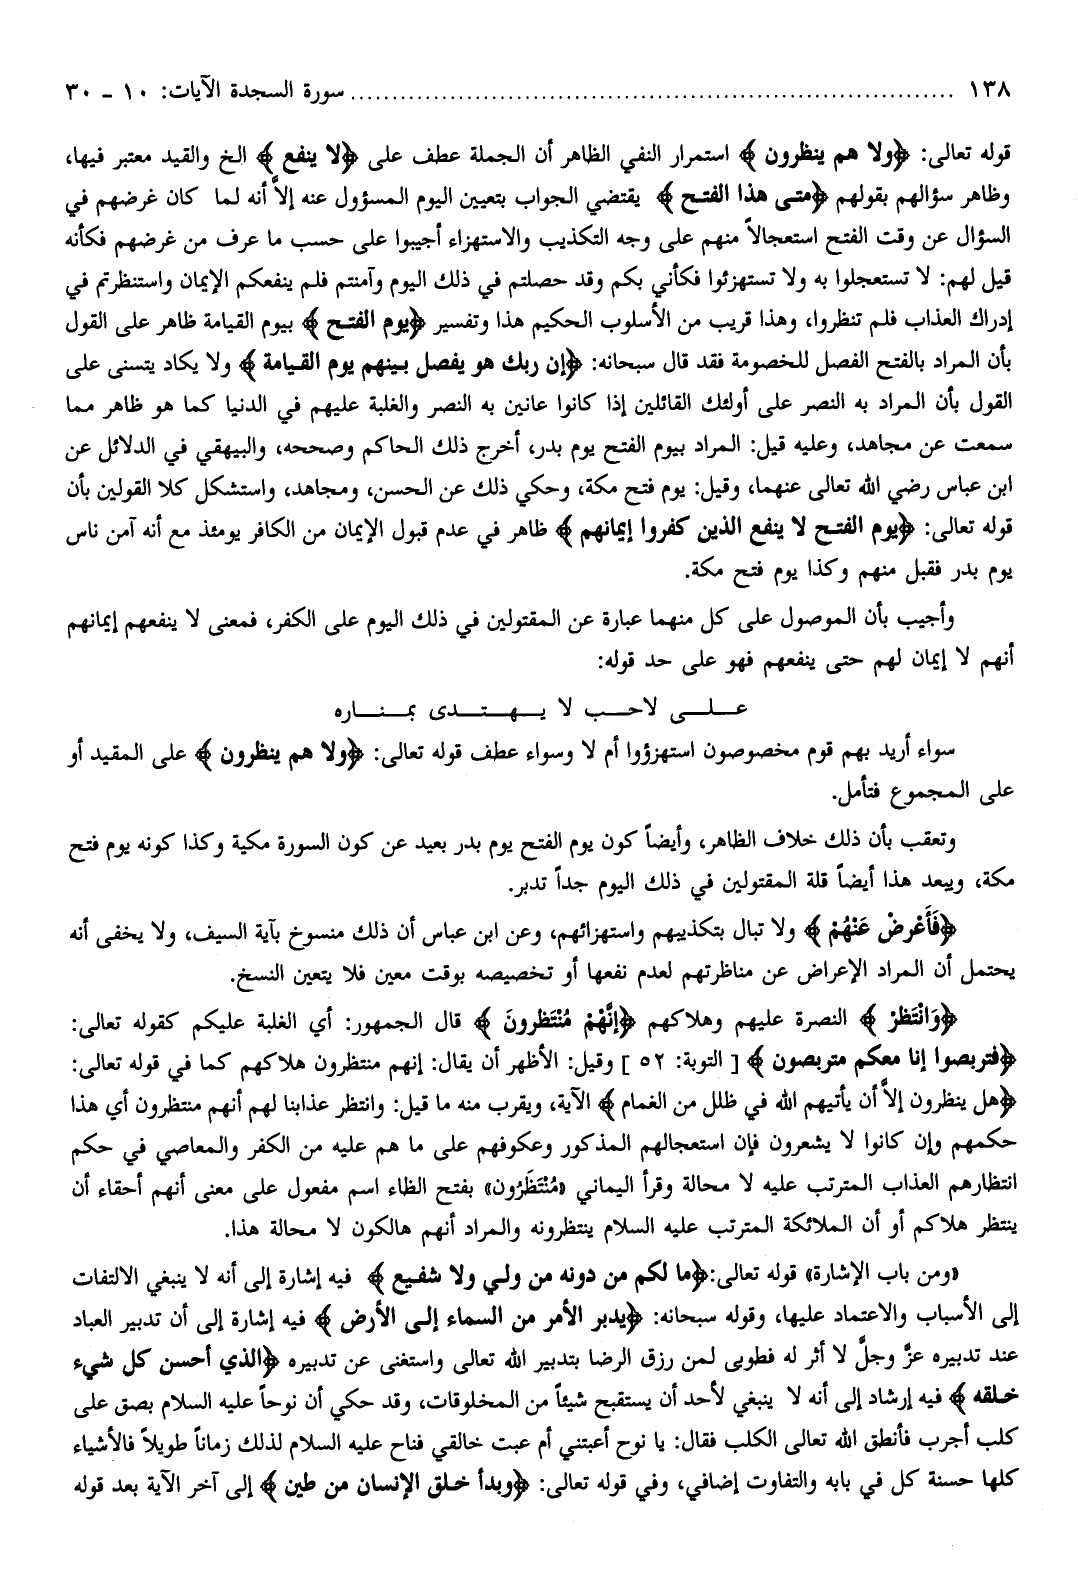 ١٣٨ ........................................................................... سورة السجدة الآيات: ١٠ ـ ٣٠
قوله تعالى: ﴿ولا هم ينظرون﴾ استمرار النفي الظاهر أن الجملة عطف على ﴿لا ينفع﴾ الخ والقيد معتبر فيها،
وظاهر سؤالهم بقولهم ﴿متى هذا الفتح﴾ يقتضي الجواب بتعيين اليوم المسؤول عنه إلاَّ أنه لما كان غرضهم في
السؤال عن وقت الفتح استعجالاً منهم على وجه التكذيب والاستهزاء أجيبوا على حسب ما عرف من غرضهم فكأنه
قيل لهم: لا تستعجلوا به ولا تستهزئوا فكأني بكم وقد حصلتم في ذلك اليوم وآمنتم فلم ينفعكم الإيمان واستنظرتم في
إدراك العذاب فلم تنظروا، وهذا قريب من الأسلوب الحكيم هذا وتفسير ﴿يوم الفتح﴾ بيوم القيامة ظاهر على القول
بأن المراد بالفتح الفصل للخصومة فقد قال سبحانه: ﴿إن ربك هو يفصل بينهم يوم القيامة﴾ ولا يكاد يتسنى على
القول بأن المراد به النصر على أولئك القائلين إذا كانوا عانين به النصر والغلبة عليهم في الدنيا كما هو ظاهر مما
سمعت عن مجاهد، وعليه قيل: المراد بيوم الفتح يوم بدر، أخرج ذلك الحاكم وصححه، والبيهقي في الدلائل عن
ابن عباس رضي الله تعالى عنهما، وقيل: يوم فتح مكة، وحكي ذلك عن الحسن، ومجاهد، واستشكل كلا القولين بأن
قوله تعالى: ﴿يوم الفتح لا ينفع الذين كفروا إيمانهم﴾ ظاهر في عدم قبول الإيمان من الكافر يومئذ مع أنه آمن ناس
يوم بدر فقبل منهم وكذا يوم فتح مكة.
وأجيب بأن الموصول على كل منهما عبارة عن المقتولين في ذلك اليوم على الكفر، فمعنى لا ينفعهم إيمانهم
أنهم لا إيمان لهم حتى ينفعهم فهو على حد قوله:
عـلـى لاحـب لا يـهـتـدى بمـنـاره
سواء أريد بهم قوم مخصوصون استهزؤوا أم لا وسواء عطف قوله تعالى: ﴿ولا هم ينظرون﴾ على المقيد أو
على المجموع فتأمل.
وتعقب بأن ذلك خلاف الظاهر، وأيضاً كون يوم الفتح يوم بدر بعيد عن كون السورة مكية وكذا كونه يوم فتح
مكة، ويبعد هذا أيضاً قلة المقتولين في ذلك اليوم جداً تدبر.
﴿فَأَعْرِضْ عَنْهُمْ﴾ ولا تبال بتكذيبهم واستهزائهم، وعن ابن عباس أن ذلك منسوخ بآية السيف، ولا يخفى أنه
يحتمل أن المراد الإعراض عن مناظرتهم لعدم نفعها أو تخصيصه بوقت معين فلا يتعين النسخ.
﴿وَانْتَظرْ﴾ النصرة عليهم وهلاكهم ﴿إنَّهُمْ مُنْتَظرونَ﴾ قال الجمهور: أي الغلبة عليكم كقوله تعالى:
﴿فتربصوا إنا معكم متربصون﴾ [ التوبة: ٥٢ ] وقيل: الأظهر أن يقال: إنهم منتظرون هلاكهم كما في قوله تعالى:
﴿هل ينظرون إلاَّ أن يأتيهم الله في ظلل من الغمام﴾ الآية، ويقرب منه ما قيل: وانتظر عذابنا لهم أنهم منتظرون أي هذا
حكمهم وإن كانوا لا يشعرون فإن استعجالهم المذكور وعكوفهم على ما هم عليه من الكفر والمعاصي في حكم
انتظارهم العذاب المترتب عليه لا محالة وقرأ اليماني «مُنْتَظَرُون» بفتح الظاء اسم مفعول على معنى أنهم أحقاء أن
ينتظر هلاكم أو أن الملائكة المترتب عليه السلام ينتظرونه والمراد أنهم هالكون لا محالة هذا.
«ومن باب الإشارة» قوله تعالى:﴿ما لكم من دونه من ولي ولا شفيع﴾ فيه إشارة إلى أنه لا ينبغي الالتفات
إلى الأسباب والاعتماد عليها، وقوله سبحانه: ﴿يدبر الأمر من السماء إلى الأرض﴾ فيه إشارة إلى أن تدبير العباد
عند تدبيره عزَّ وجلَّ لا أثر له فطوبى لمن رزق الرضا بتدبير الله تعالى واستغنى عن تدبيره ﴿الذي أحسن كل شيء
خلقه﴾ فيه إرشاد إلى أنه لا ينبغي لأحد أن يستقبح شيئاً من المخلوقات، وقد حكي أن نوحاً عليه السلام بصق على
كلب أجرب فأنطق الله تعالى الكلب فقال: يا نوح أعبتني أم عبت خالقي فناح عليه السلام لذلك زماناً طويلاً فالأشياء
كلها حسنة كل في بابه والتفاوت إضافي، وفي قوله تعالى: ﴿وبدأ خلق الإنسان من طين﴾ إلى آخر الآية بعد قوله